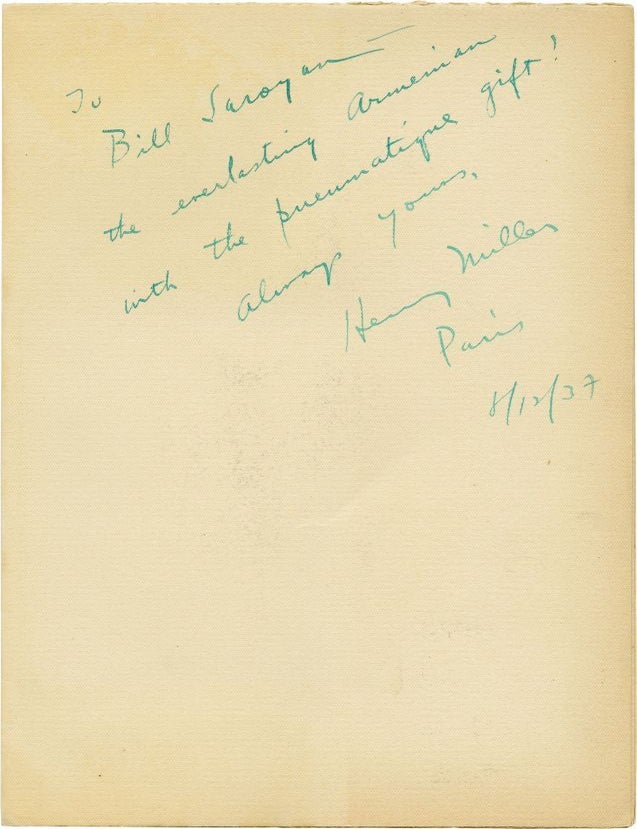 To
Bill Saroyan —
the everlasting Armenian
with the pneumatique gift!
Always yours,
Henry Miller
Paris
8/12/37